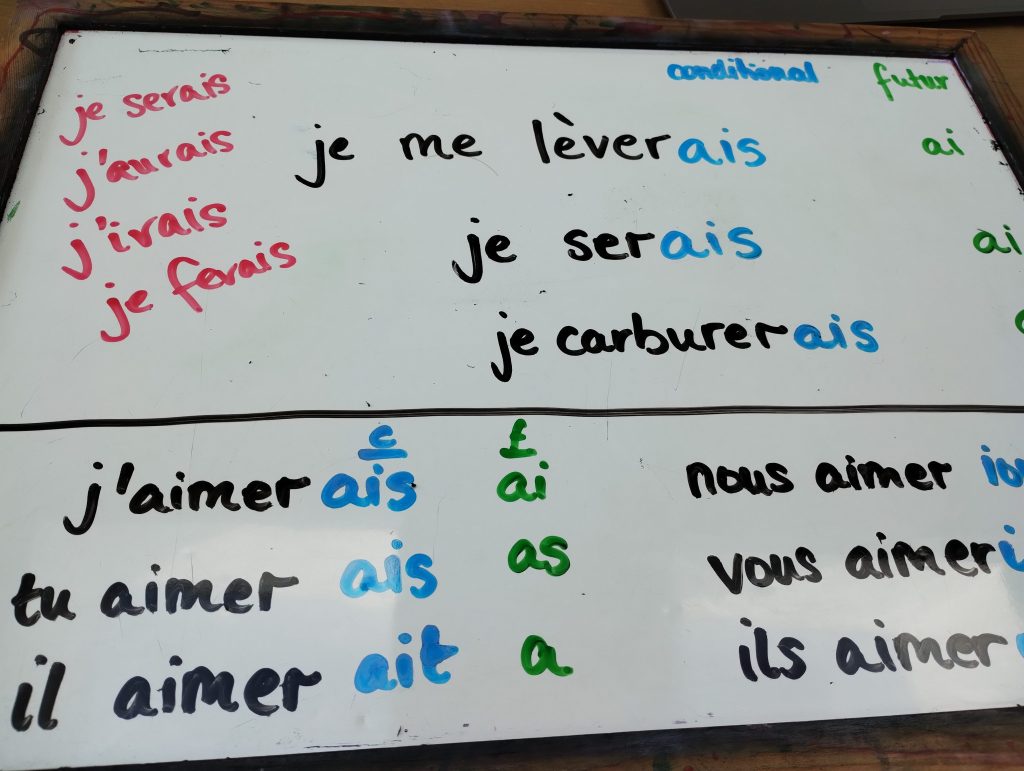 conditional futur
je serais
j'aurais
j'irais
je ferais
je me lèverais ai
je serais ai
je carburerais
c f
j'aimer ais ai
tu aimer ais as
il aimer ait a
nous aimer
vous aimer
ils aimer